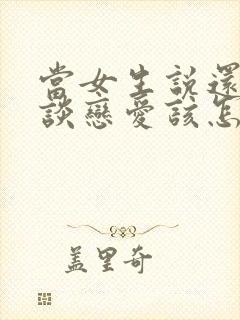 當女生說還
談戀愛該怎
蓋里奇